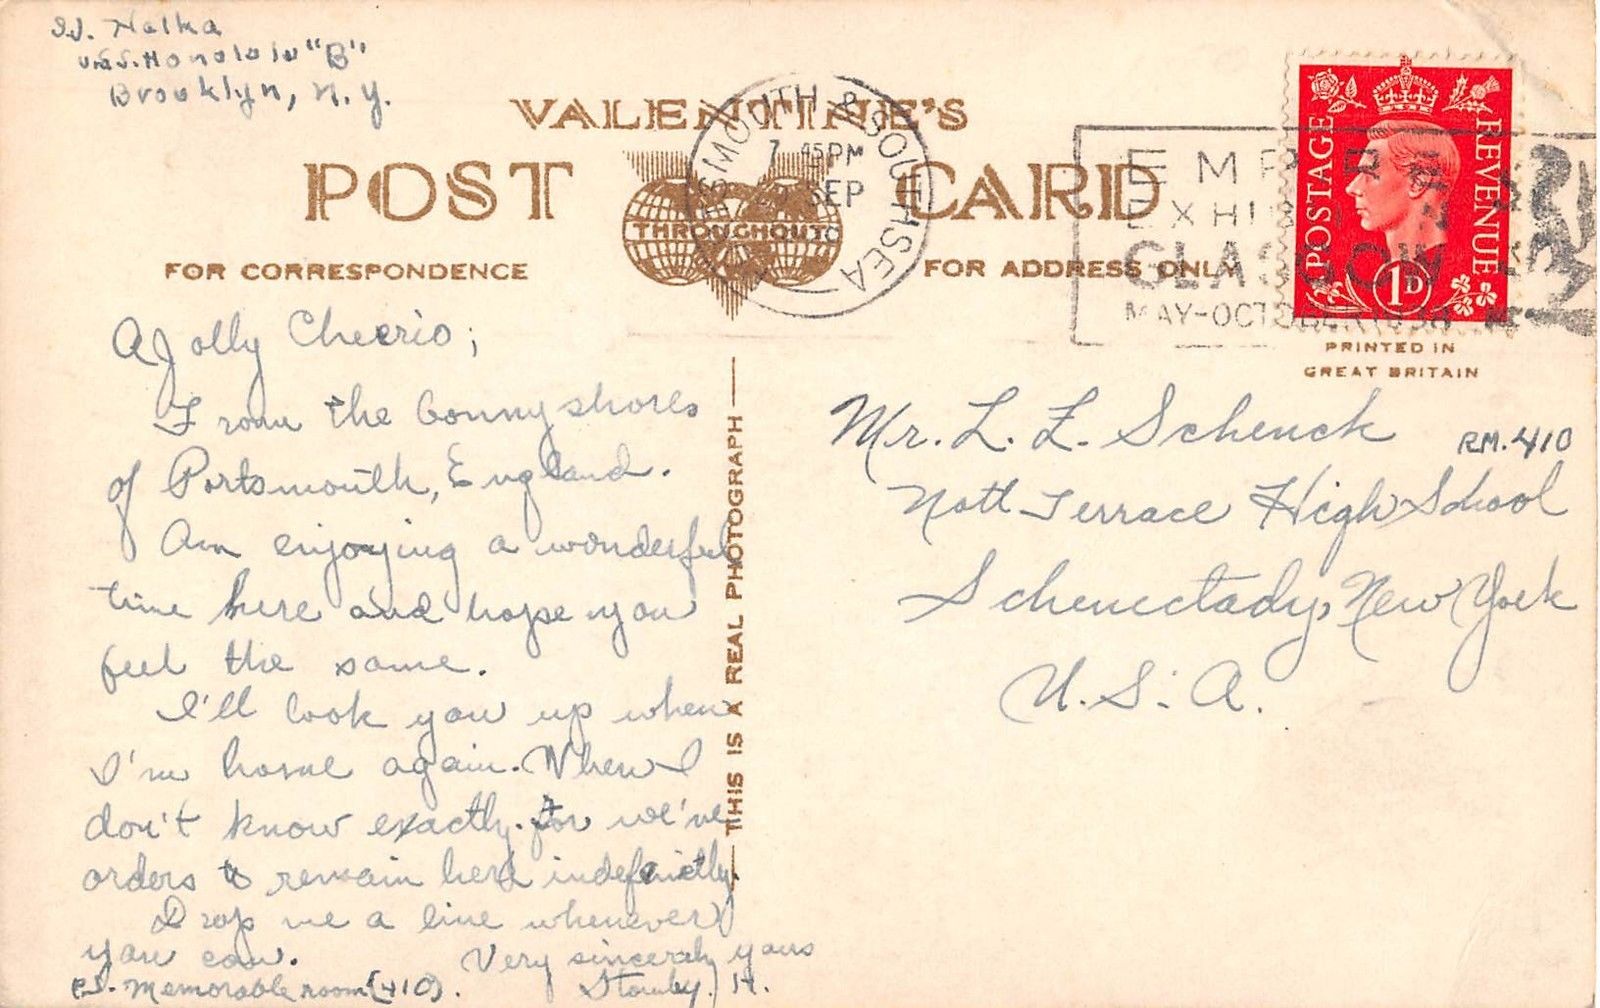 S.J. Nalka
U.S.S. Honolulu "B"
Brooklyn, N.Y.
VALENTINE'S
POST CARD
THROUGHOUT
FOR CORRESPONDENCE
FOR ADDRESS ONLY
SMOUTH & SOUTHSEA
7 45PM
SEP
EMPIRE
EXHIBITION
GLASGOW
MAY-OCTOBER 1938
POSTAGE REVENUE
1D
PRINTED IN
GREAT BRITAIN
A Jolly Cheerio;
From the bonny shores
of Portsmouth, England.
Am enjoying a wonderful
time here and hope you
feel the same.
I'll look you up when
I'm home again. When I
don't know exactly. For we've
orders to remain here indefinetly.
Drop me a line whenever
you can.
Very sincerely yours
Stanley. H.
P.S. Memorable room (410).
THIS IS A REAL PHOTOGRAPH
Mr. L. F. Schenck RM. 410
Nott Terrace High School
Schenectady, New York
U.S.A.